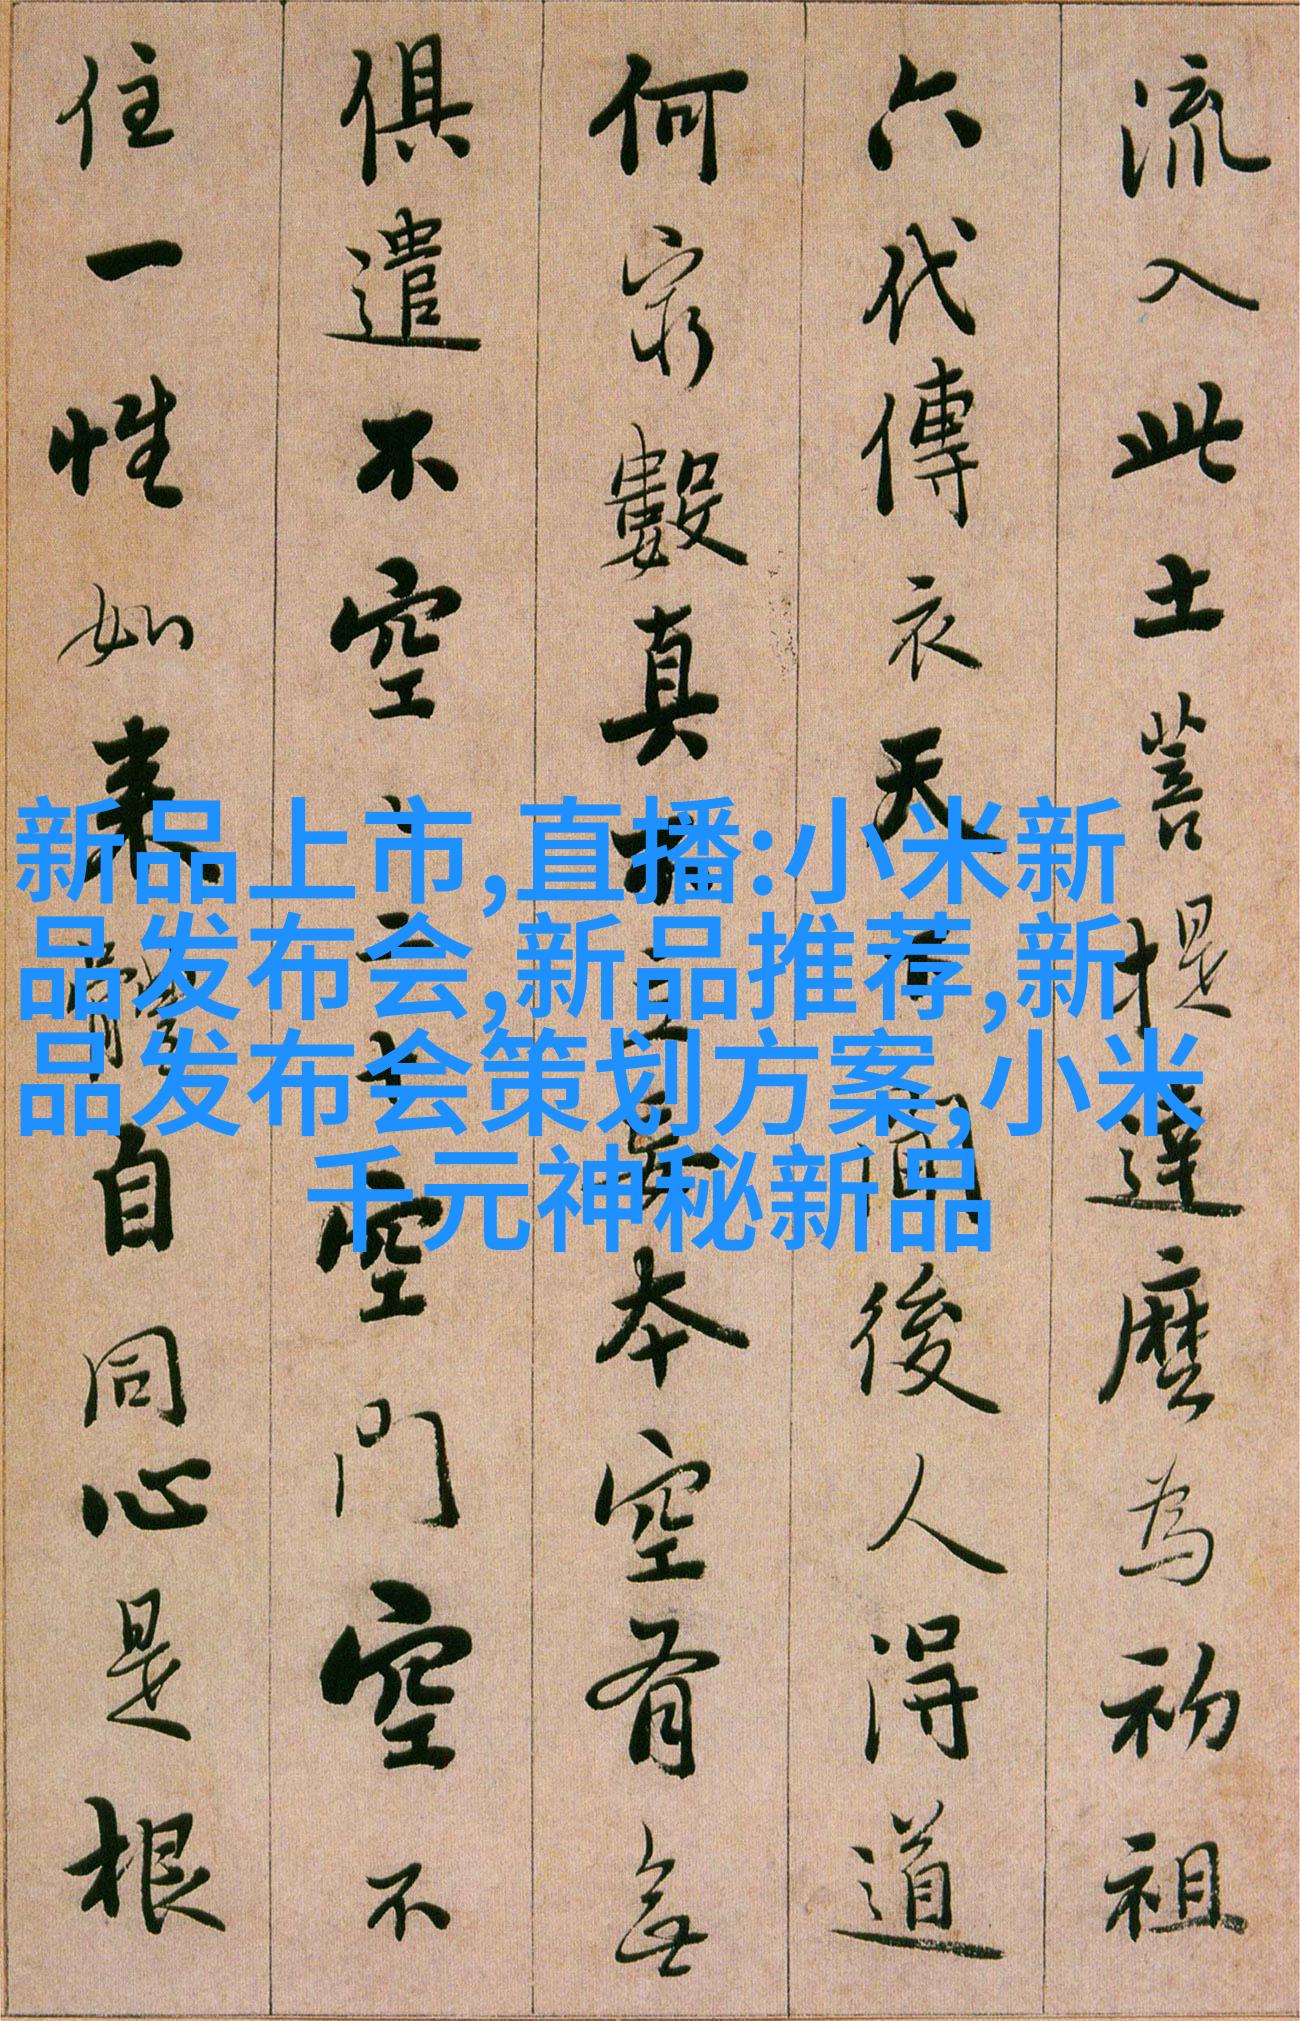 流入此土菩提達麼為初祖
六代傳衣天聞後人得道
何窮數真本空有無
俱遣不空空門空不
住一性如來體自同心是根
新品上市,直播:小米新
品发布会,新品推荐,新
品发布会策划方案,小米
千元神秘新品